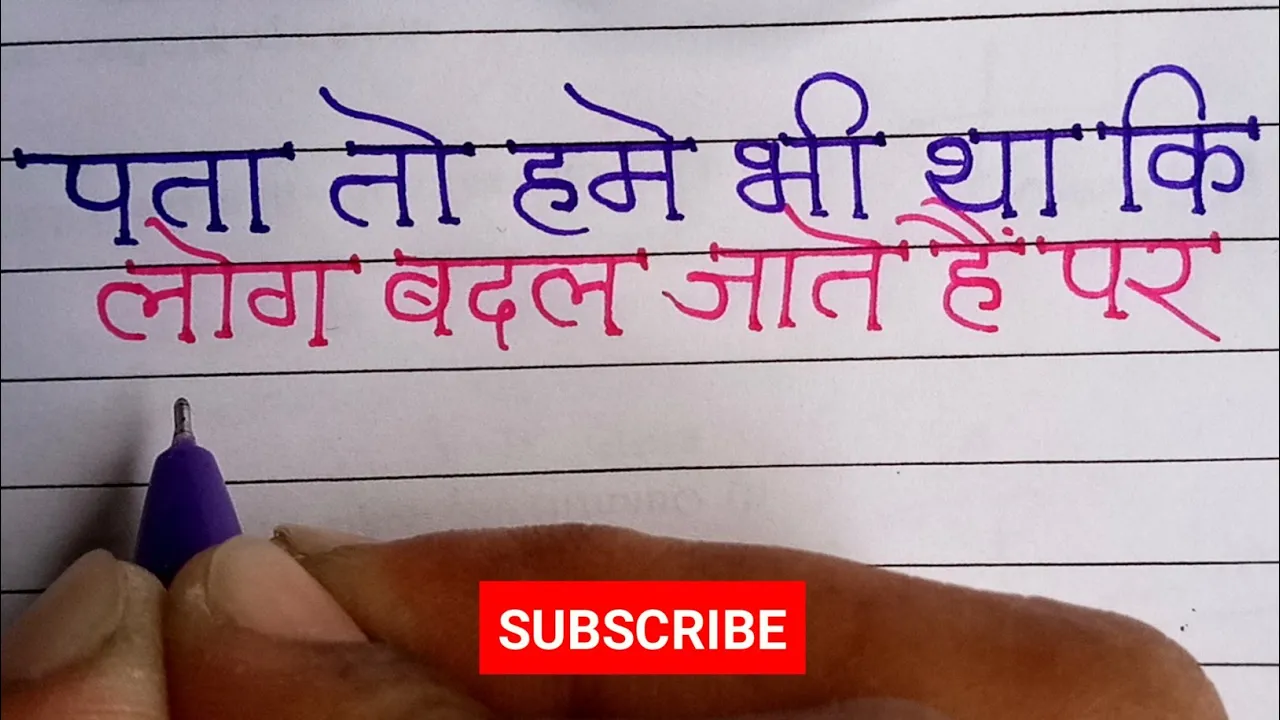 पता तो हमे भी था कि
लोग बदल जाते हैं पर
SUBSCRIBE